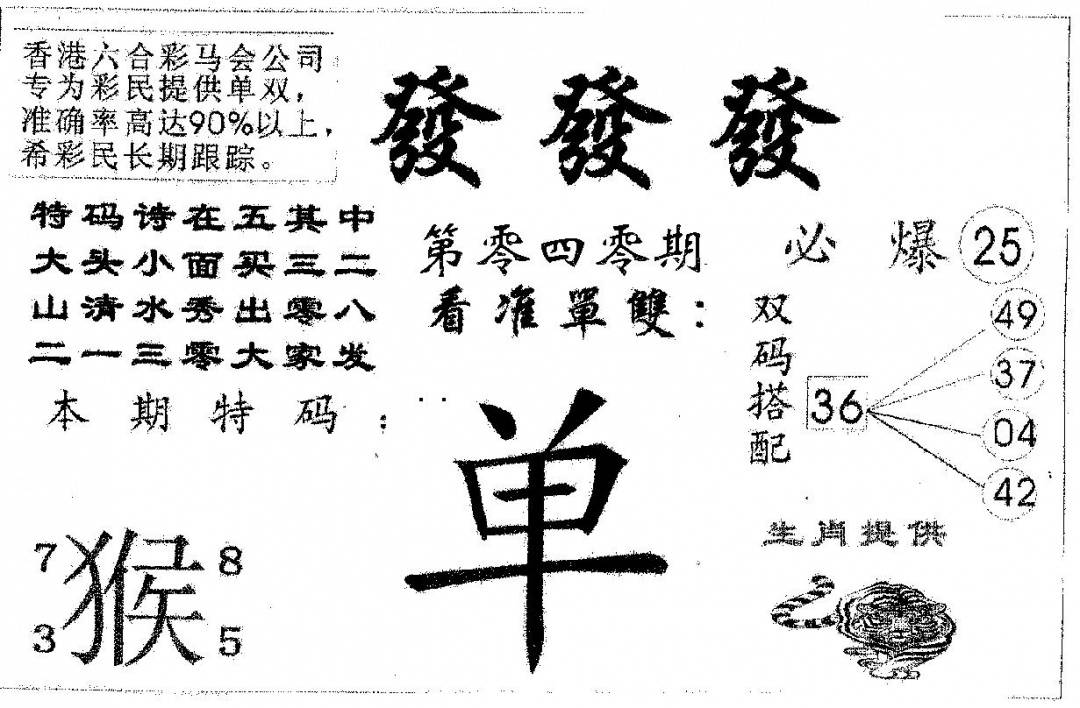 香港六合彩马会公司
专为彩民提供单双，
准确率高达90%以上，
希彩民长期跟踪。
發發發
特码诗在五其中
大头小面买三二
山清水秀出零八
二一三零大家发
本期特码：
第零四零期
看准單雙：
单
必爆25
双码搭配
36
49
37
04
42
生肖提供
7 猴 8
3 5